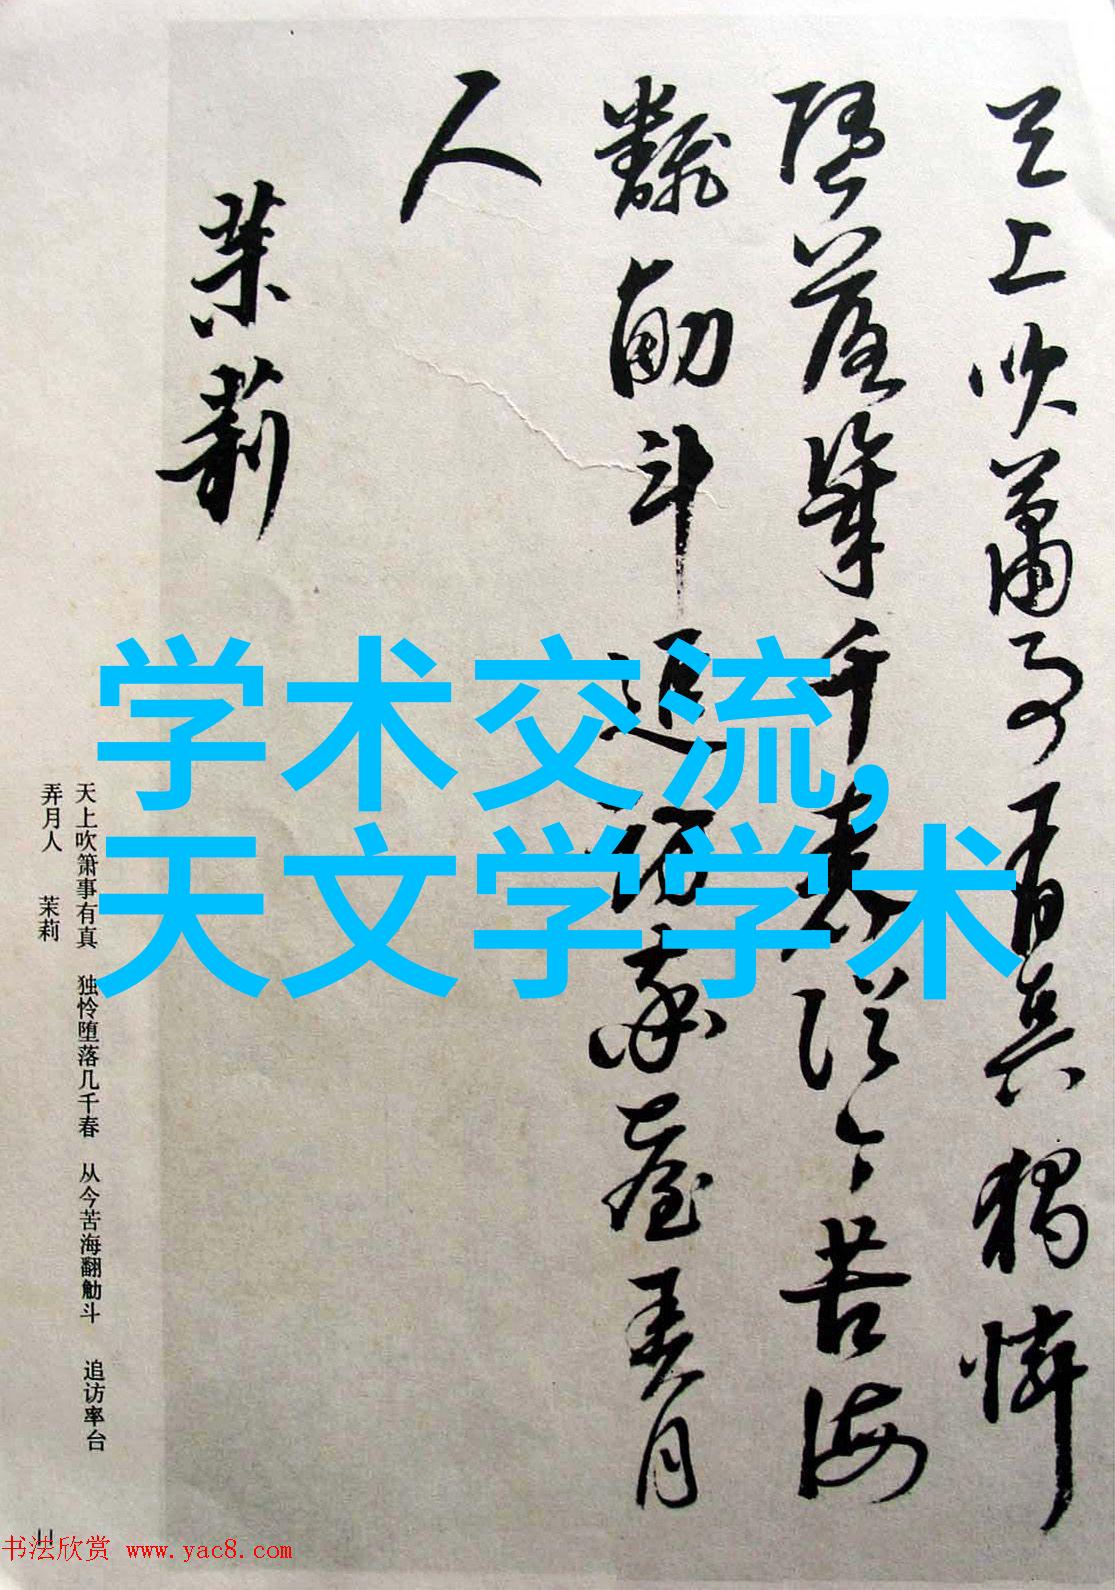 天上吹簫事有真獨憐
墮落幾千春從今苦海
翻觔斗追訪率臺弄月
人
茉莉
学术交流,
天文学学术
天上吹箫事有真 独怜堕落几千春 从今苦海翻觔斗 追访率台
弄月人 茉莉
11
书法欣赏 www.yac8.com